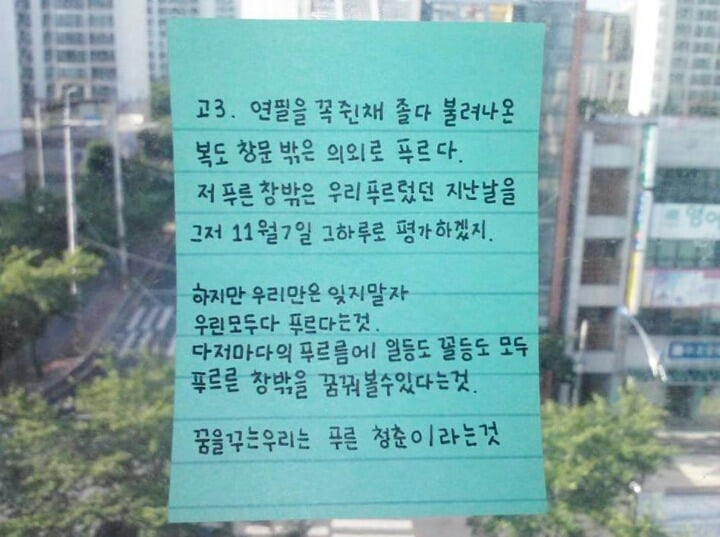 고3. 연필을 꼭쥔채 졸다 불려나온
복도 창문 밖은 의외로 푸르다.
저 푸른 창밖은 우리 푸르렀던 지난날을
그저 11월7일 그하루로 평가하겠지.
하지만 우리만은 잊지말자
우린모두다 푸르다는것.
다저마다의 푸르름에 일등도 꼴등도 모두
푸르른 창밖을 꿈꿔볼수있다는것.
꿈을꾸는우리는 푸른 청춘이라는것